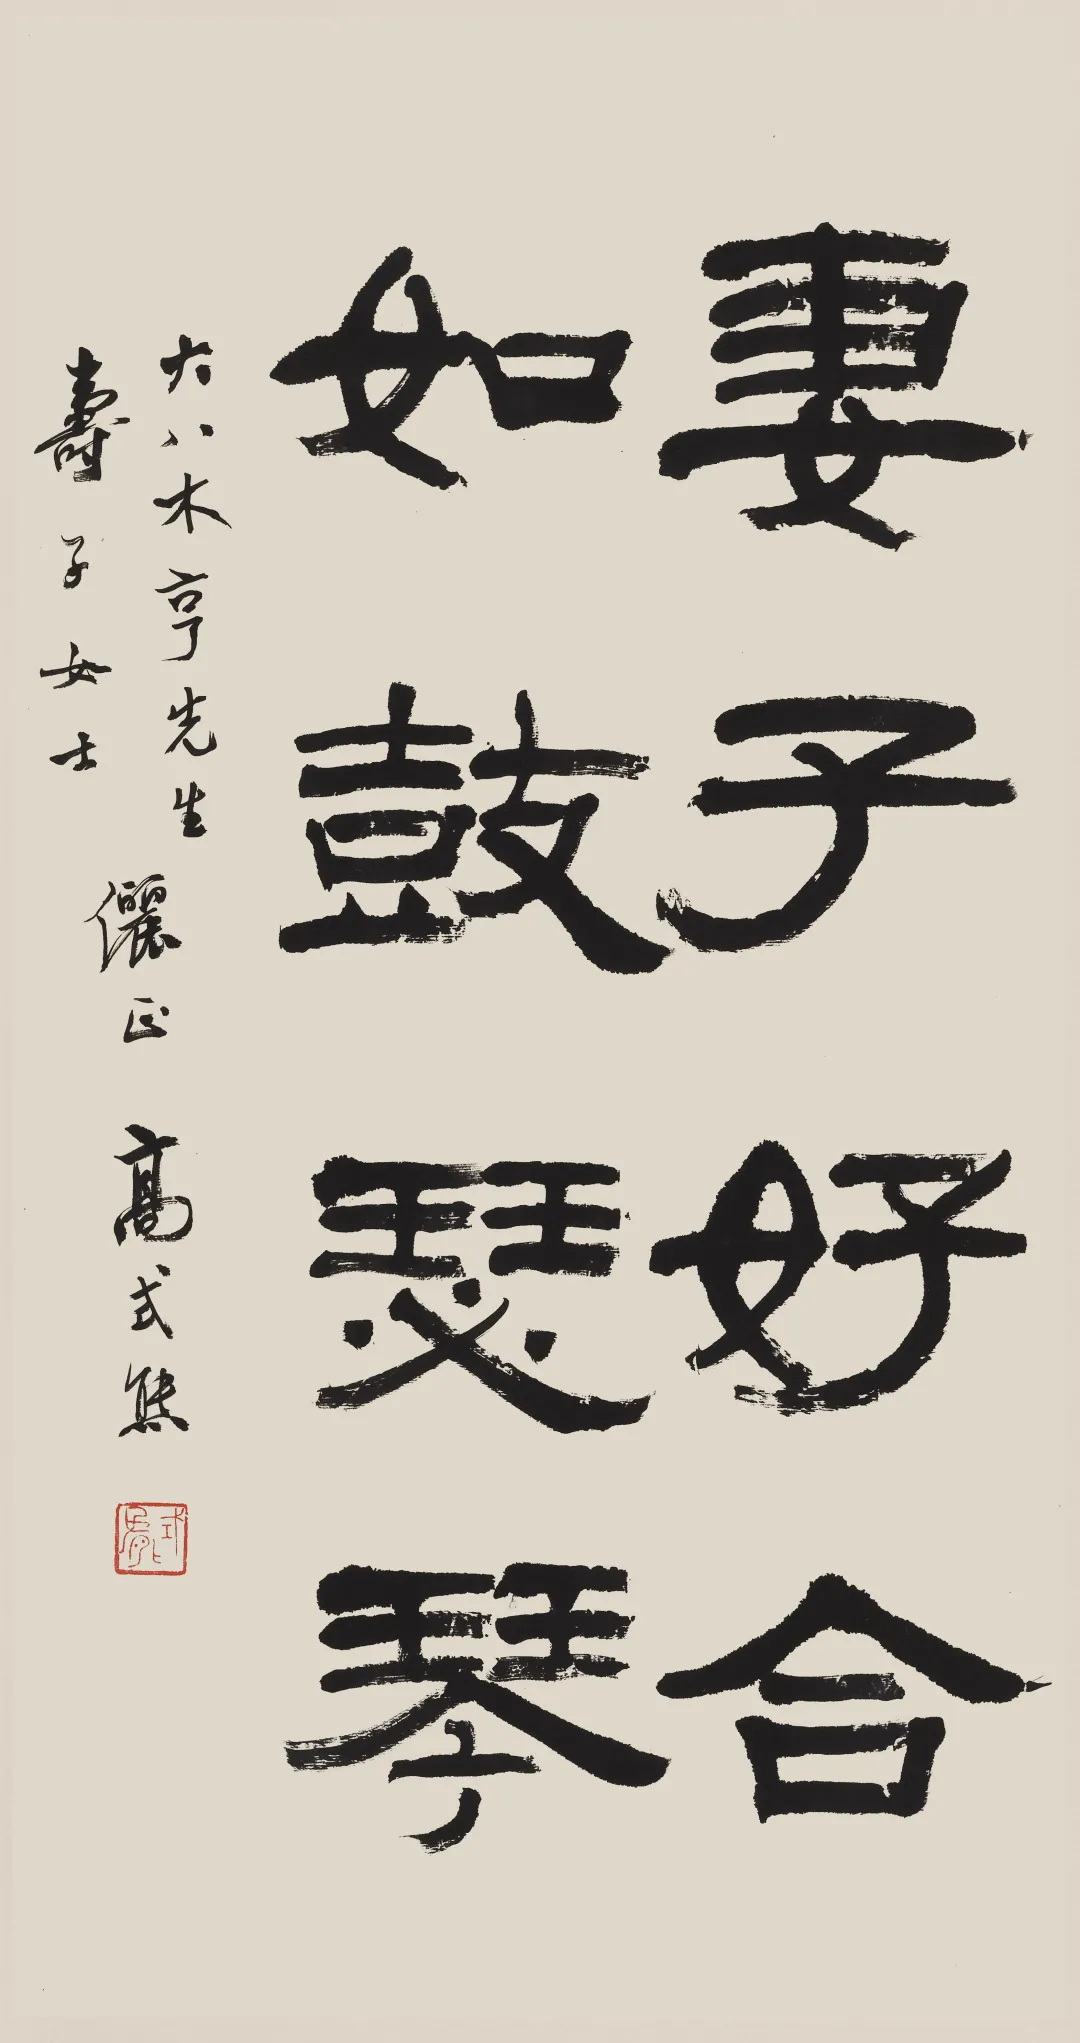 妻子好合
如鼓瑟琴
大八木亨先生
壽子女士
儷正
高式熊
式熊